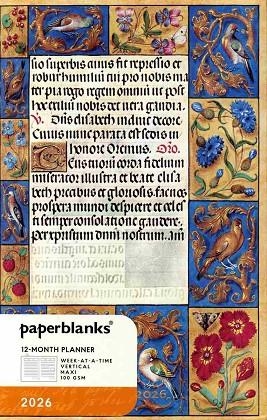 sio superbis animis fit repressio et
robur humili cui pro nobis ma
ter pia rogo regem omnium ut post
hoc exilium nobis det vera gaudia.
V. Diffusa elisabeth indue decore
Cuius nunc parata est sedis in
honore Oremus. Oro.
corda fidelium
miserator illustra et beate elisa
beth precibus et gloriosis. fac nos
prospera mundi despicere et celes
ti semper consolatione gaudere.
per xpistum dnum nostrum. am
paperblanks®
12-MONTH PLANNER
WEEK-AT-A-TIME
VERTICAL
MAXI
100 GSM
2026
2026